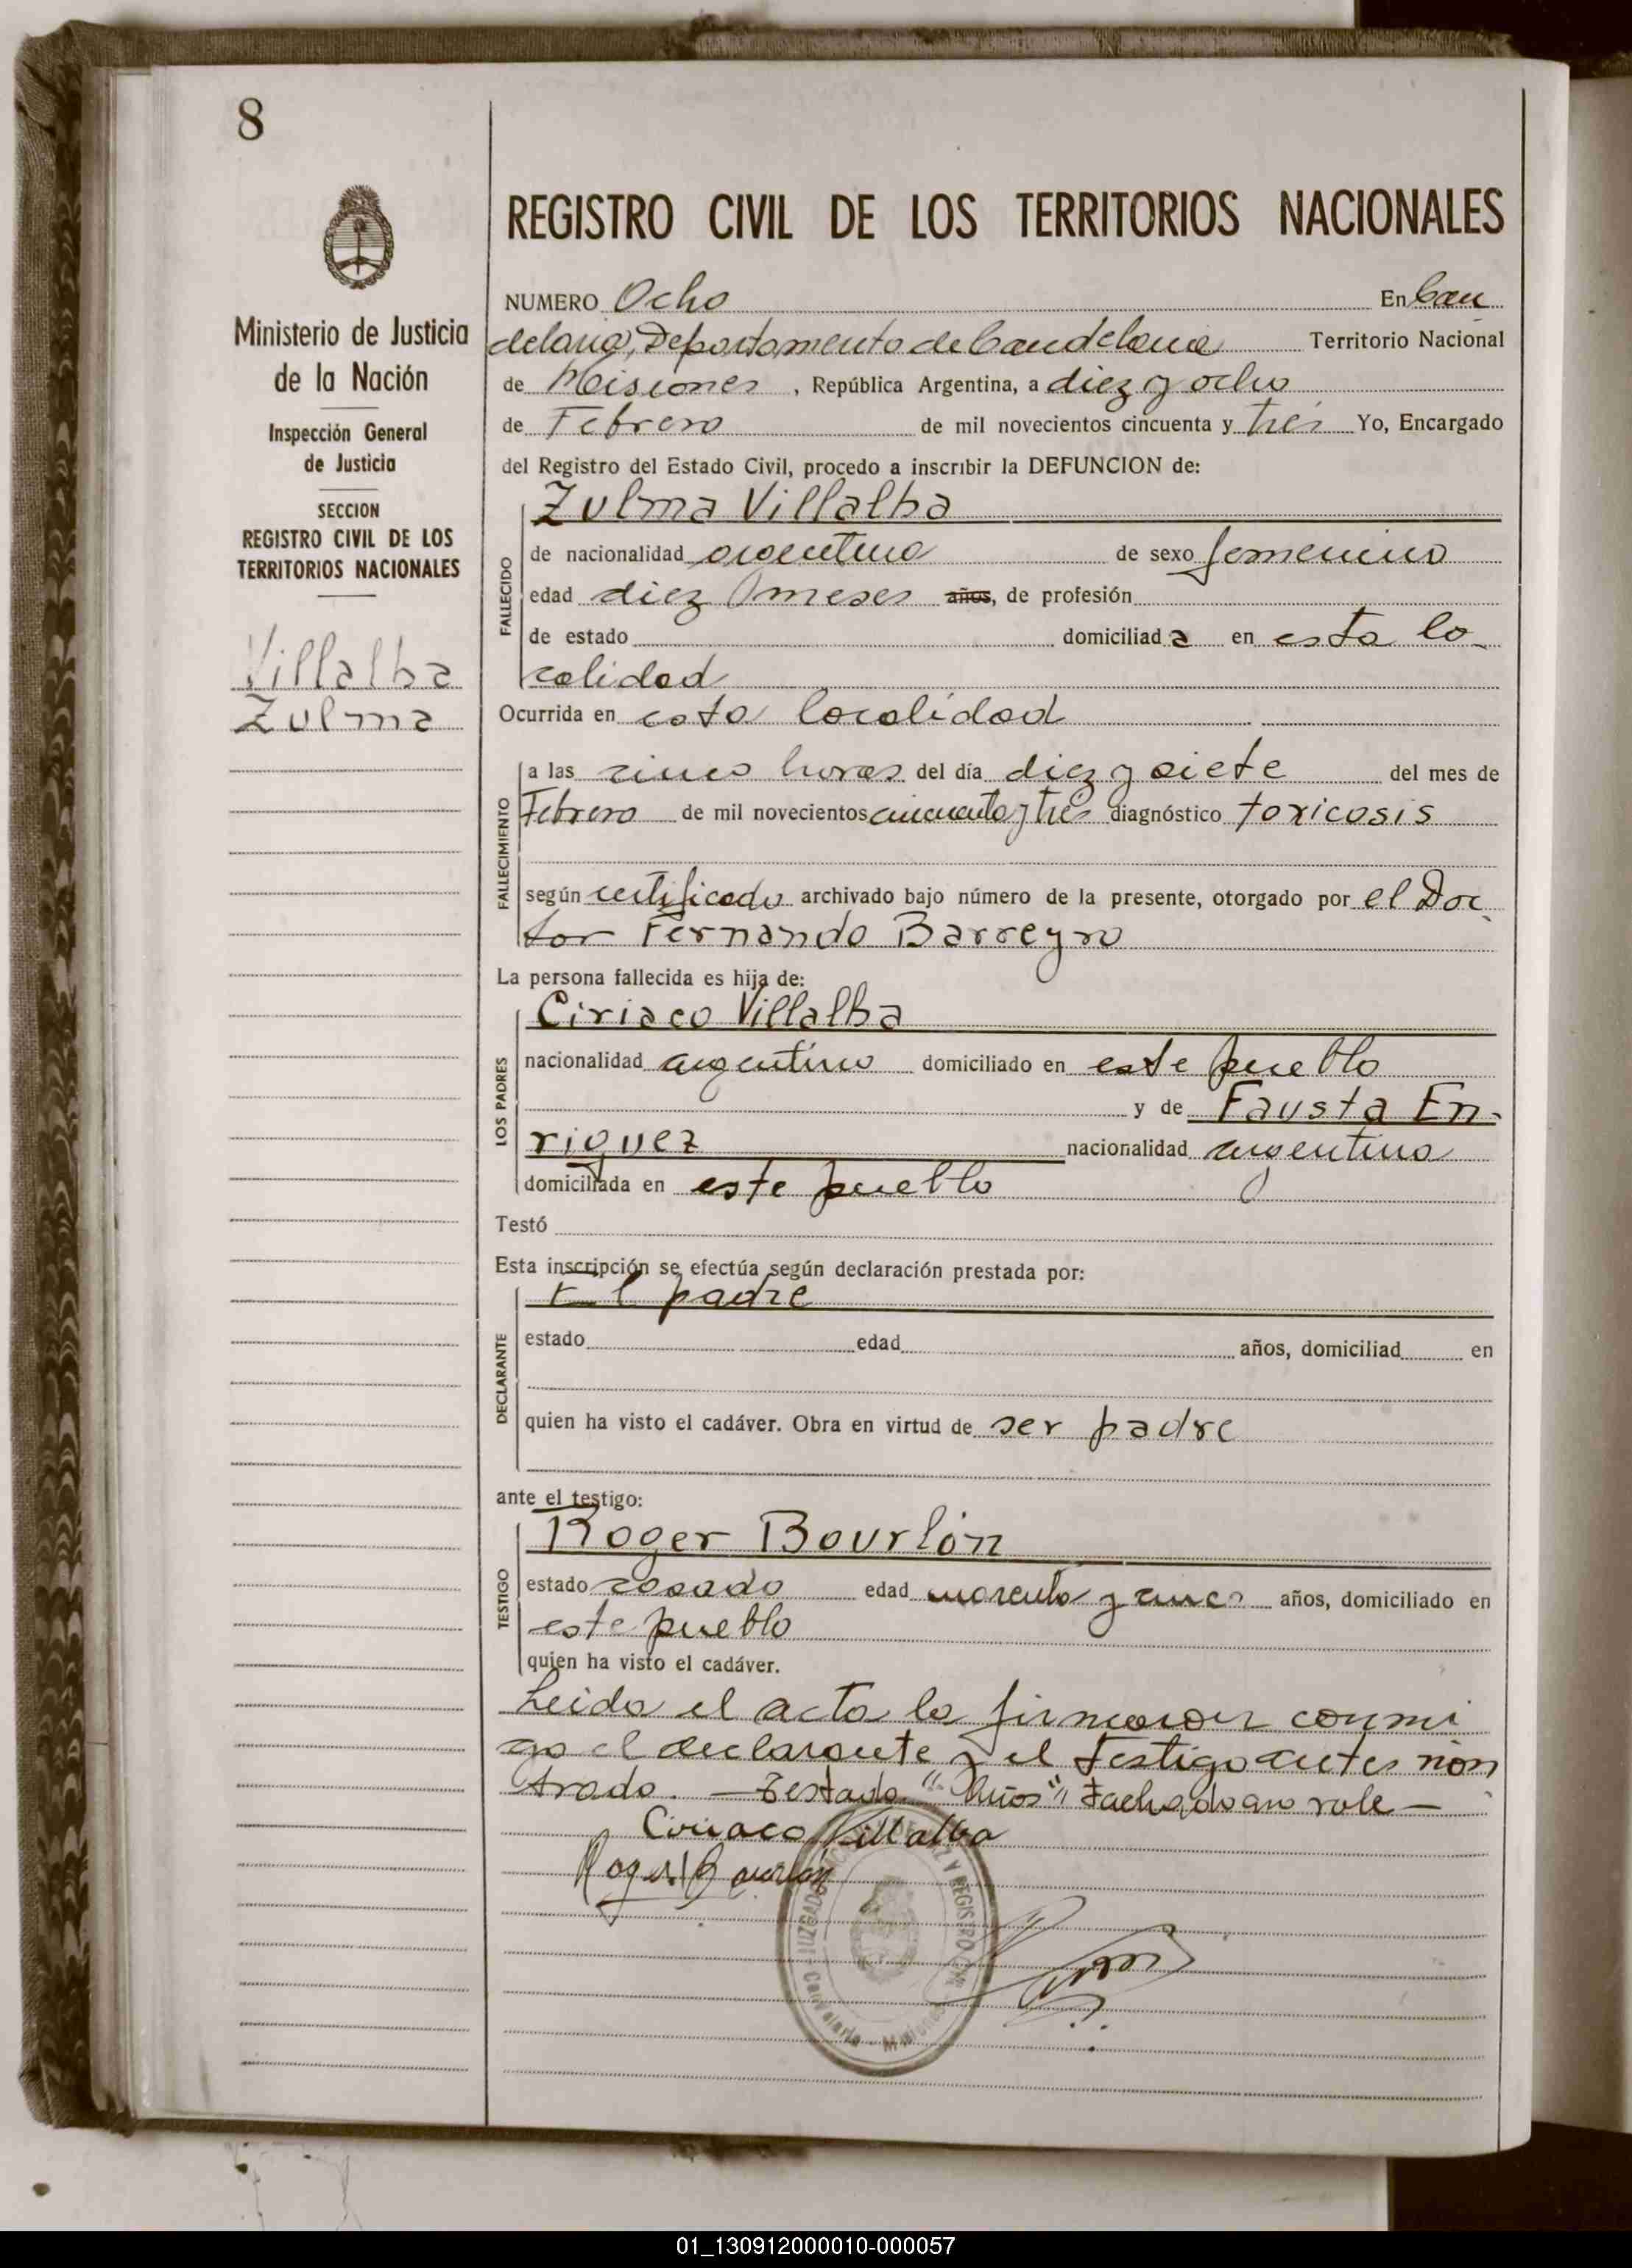 8
REGISTRO CIVIL DE LOS TERRITORIOS NACIONALES
Ministerio de Justicia
de la Nación
Inspección General
de Justicia
SECCION
REGISTRO CIVIL DE LOS
TERRITORIOS NACIONALES
Villalba
Zulma
NUMERO Ocho En Can
delaria, Departamento de Candelaria Territorio Nacional
de Misiones, República Argentina, a diez y ocho
de Febrero de mil novecientos cincuenta y tres Yo, Encargado
del Registro del Estado Civil, procedo a inscribir la DEFUNCION de:
FALLECIDO
Zulma Villalba
de nacionalidad argentina de sexo femenino
edad diez meses años, de profesión
de estado domiciliad a en esta lo-
calidad
Ocurrida en esta localidad
FALLECIMIENTO
a las cinco horas del día diez y siete del mes de
Febrero de mil novecientos cincuenta y tres diagnóstico toxicosis
según certificado archivado bajo número de la presente, otorgado por el Doc-
tor Fernando Barreyro
La persona fallecida es hija de:
LOS PADRES
Ciriaco Villalba
nacionalidad argentino domiciliado en este pueblo
y de Fausta En-
riquez nacionalidad argentina
domiciliada en este pueblo
Testó
Esta inscripción se efectúa según declaración prestada por:
DECLARANTE
El padre
estado edad años, domiciliad en
quien ha visto el cadáver. Obra en virtud de ser padre
ante el testigo:
TESTIGO
Roger Bourlón
estado casado edad y cinco años, domiciliado en
este pueblo
quien ha visto el cadáver.
Leida el acta la firmaron conmi
go el declarante y el testigo antes nom
trado. — Testado "años" Tachado no vale —
Ciriaco Villalba
Roger Bourlón
JUZGADO DE PAZ Y REGISTRO CIVIL
Candelaria - Misiones
01_130912000010-000057